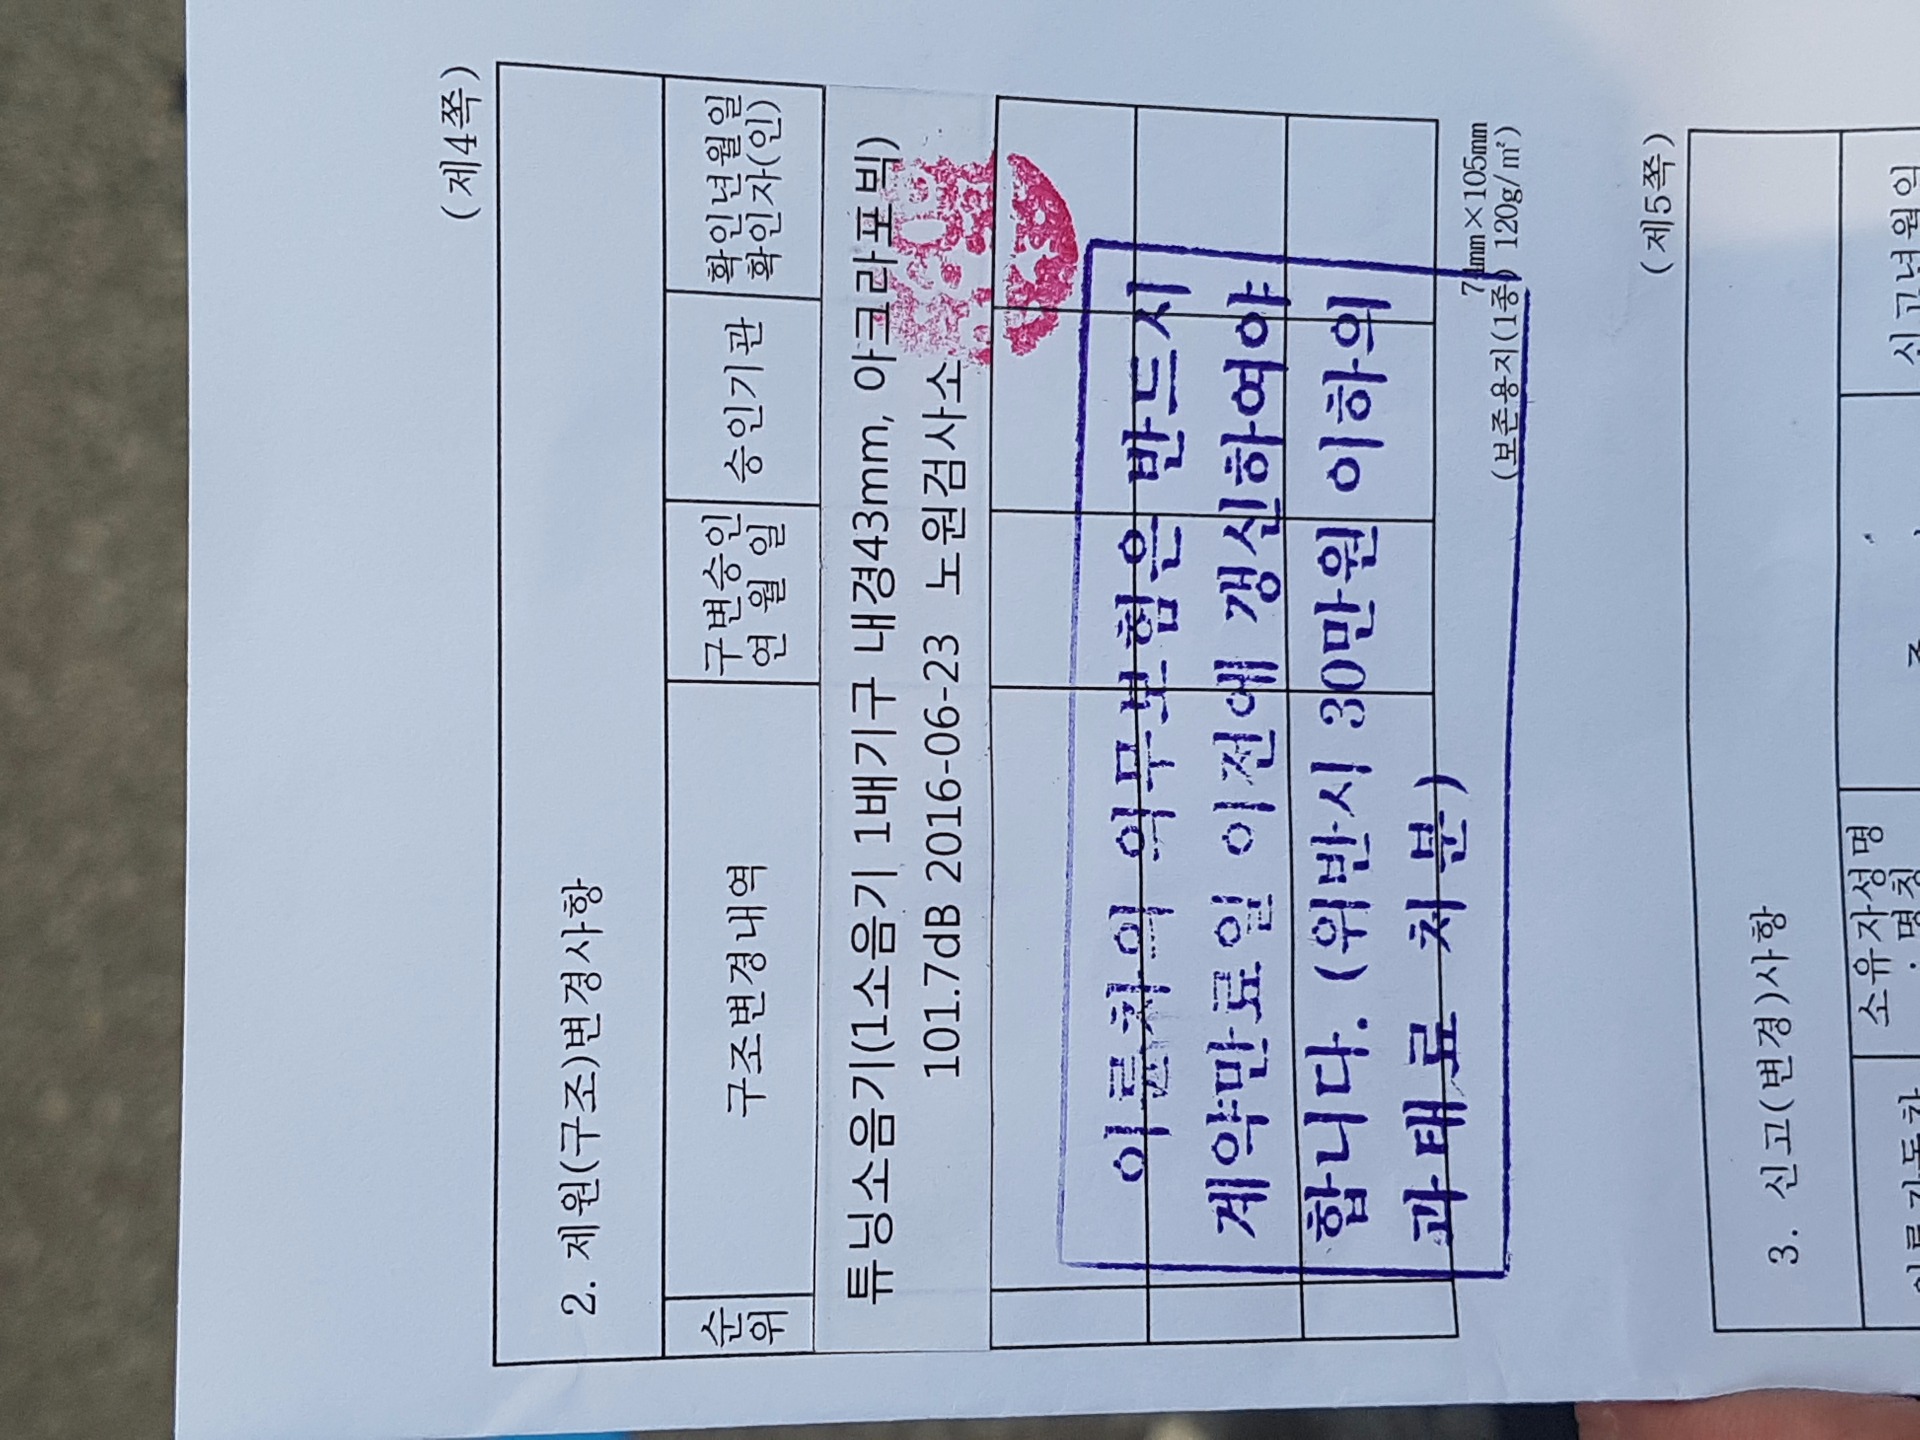 (제4쪽)
2. 제원(구조)변경사항
순위
구조변경내역
구변승인
연 월 일
승인기관
확인년월일
확인자(인)
튜닝소음기(1소음기 1배기구 내경43mm, 아크라포빅)
101.7dB 2016-06-23 노원검사소
이륜차의 의무보험은 반드시
계약만료일 이전에 갱신하여야
합니다. (위반시 30만원 이하의
과태료 처분)
74mm×105mm
(보존용지(1종) 120g/㎡)
(제5쪽)
3. 신고(변경)사항
소유자성명
신고년월일